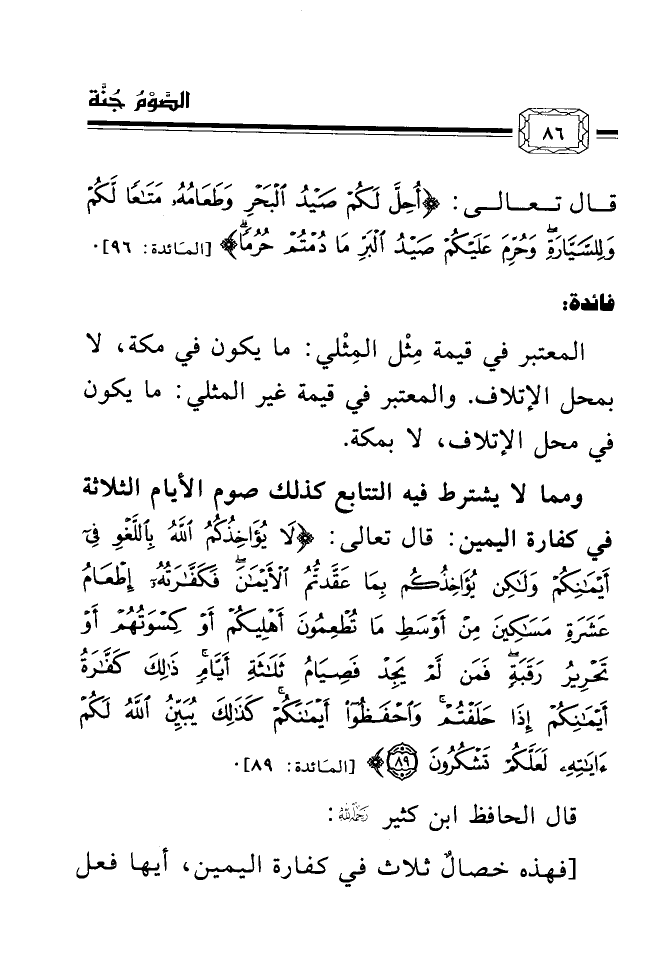 الصَّوْمُ جُنَّة
٨٦
قال تعالى: ﴿أُحِلَّ لَكُمْ صَيْدُ الْبَحْرِ وَطَعَامُهُۥ مَتَٰعًا لَّكُمْ
وَلِلسَّيَّارَةِۖ وَحُرِّمَ عَلَيْكُمْ صَيْدُ الْبَرِّ مَا دُمْتُمْ حُرُمًاۗ﴾ [المائدة: ٩٦].
فائدة:
المعتبر في قيمة مِثْل المِثْلي: ما يكون في مكة، لا
بمحل الإتلاف. والمعتبر في قيمة غير المثلي: ما يكون
في محل الإتلاف، لا بمكة.
ومما لا يشترط فيه التتابع كذلك صوم الأيام الثلاثة
في كفارة اليمين: قال تعالى: ﴿لَا يُؤَاخِذُكُمُ اللَّهُ بِاللَّغْوِ فِىٓ
أَيْمَٰنِكُمْ وَلَٰكِن يُؤَاخِذُكُم بِمَا عَقَّدتُّمُ الْأَيْمَٰنَۖ فَكَفَّٰرَتُهُۥٓ إِطْعَامُ
عَشَرَةِ مَسَٰكِينَ مِنْ أَوْسَطِ مَا تُطْعِمُونَ أَهْلِيكُمْ أَوْ كِسْوَتُهُمْ أَوْ
تَحْرِيرُ رَقَبَةٍۖ فَمَن لَّمْ يَجِدْ فَصِيَامُ ثَلَٰثَةِ أَيَّامٍۚ ذَٰلِكَ كَفَّٰرَةُ
أَيْمَٰنِكُمْ إِذَا حَلَفْتُمْۚ وَاحْفَظُوٓا۟ أَيْمَٰنَكُمْۚ كَذَٰلِكَ يُبَيِّنُ اللَّهُ لَكُمْ
ءَايَٰتِهِۦ لَعَلَّكُمْ تَشْكُرُونَ ٨٩﴾ [المائدة: ٨٩].
قال الحافظ ابن كثير رَحِمَهُ اللَّهُ:
[فهذه خصالٌ ثلاث في كفارة اليمين، أيها فعل